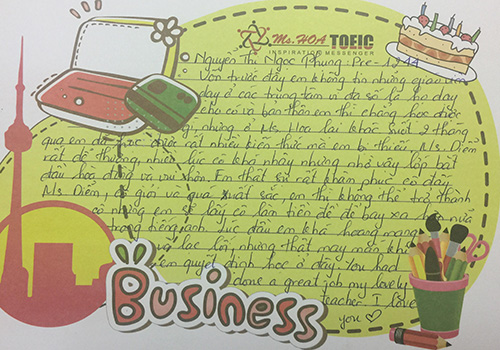 Ms. HOA TOEIC
INSPIRATION MESSENGER
Nguyen Thị Ngọc Phụng: Pre - 1244
Vốn trước đây em không tin những giáo viên
dạy ở các trung tâm vì đa số là họ dạy
cho có và bản thân em thì chẳng học được
gì, nhưng ở Ms. Hoa lại khác. Suốt 2 tháng
qua em đã học được rất nhiều kiến thức mà em bị thiếu. Ms. Diễm
rất dễ thương, nhiều lúc cô khá nhây nhưng nhờ vậy lớp bắt
đầu học đông và vui hơn. Em thật sự rất khâm phục cô đấy
Ms. Diễm, cô giỏi và quá xuất sắc, em thì không thể trở thành
cô nhưng em sẽ lấy cô làm tiền đề để bay xa hơn nữa
trong tiếng anh. Lúc đầu em khá hoang mang
và lạc lối, nhưng thật may mắn khi
em quyết định học ở đây. You had
done a great job my lovely
teacher. I love
you
BUSINESS